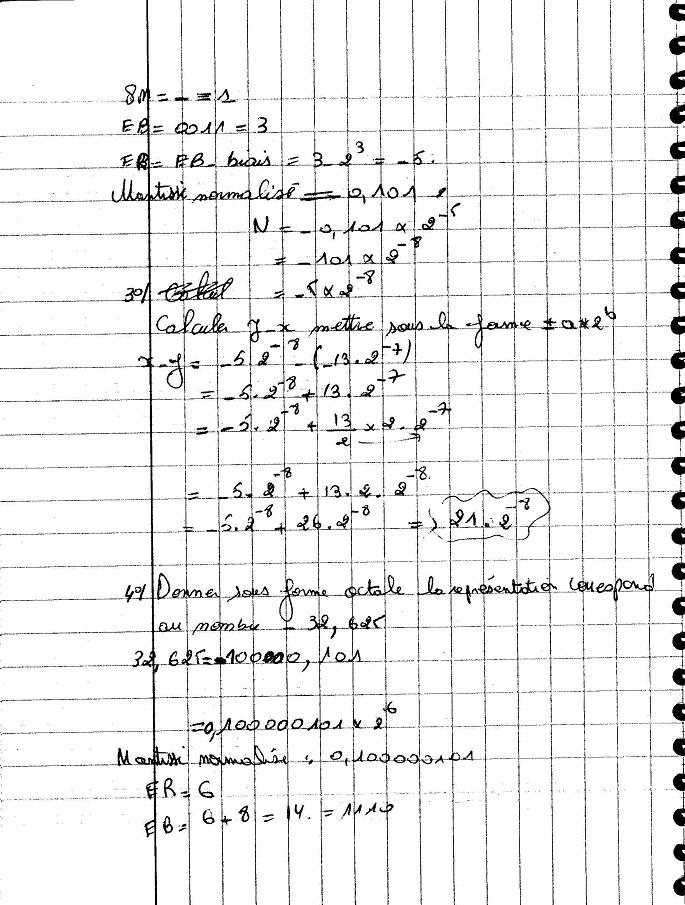 SM = - = 1
EB = 0011 = 3
ER = EB - biais = 3 - 2^3 = -5.
Mantisse normalisé = 0,101
N = - 0,101 x 2^-5
= - 101 x 2^-8
3°/ = -5 x 2^-8
Calculer y - x mettre sous la forme ± a * 2^b
x - y = -5 . 2^-8 - (-13 . 2^-7)
= -5 . 2^-8 + 13 . 2^-7
= -5 . 2^-8 + 13/2 x 2 . 2^-7
= -5 . 2^-8 + 13 . 2 . 2^-8
= -5 . 2^-8 + 26 . 2^-8 => 21 . 2^-8
4°/ Donner sous forme octale la représentation correspond
au nombre - 32, 625
32, 625 = 100000, 101
= 0,100000101 x 2^6
Mantisse normalisée : 0,100000101
ER = 6
EB = 6 + 8 = 14. = 1110